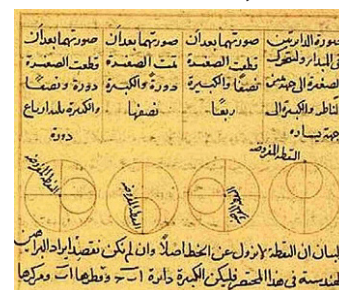 صورة الدايرتين
في البداء ولتتحرك
الصغيرة الى جهة يمين
الناظر والكبيرة الى
جهة يساره
صورتهما بعد ان
قطعت الصغيرة
نصفا والكبيرة
ربعا
صورتهما بعد ان
تمت الصغيرة
دورة والكبيرة
نصفها
صورتهما بعد ان
قطعت الصغيرة
دورة ونصفا
والكبيرة ثلثة ارباع
دورة
النقطة المفروضة
النقطة المفروضة
النقطة المفروضة
البيان ان النقطة لا تزول عن الخط اصلا وان لم نكن نقصد ايراد البراهين
الهندسية في هذا المختصر فليكن الكبيرة دائرة اب وقطرها اب ومركزها